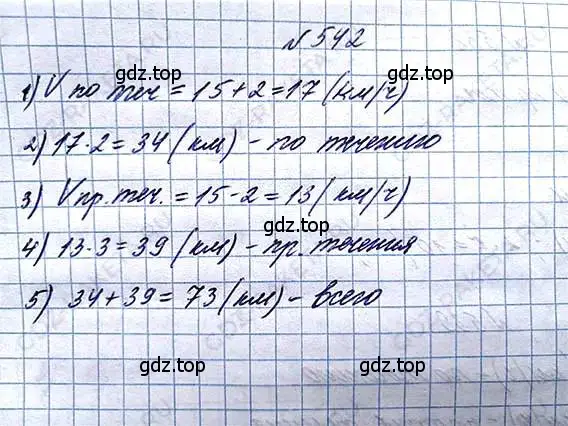 №542
gdz.top
1) V по теч = 15+2=17 (км/ч)
2) 17·2=34 (км) - по течению
3) Vпр.теч. = 15-2=13 (км/ч)
gdz.top
4) 13·3=39 (км) - пр. течения
5) 34+39= 73 (км) - всего
gdz.top
gdz.top